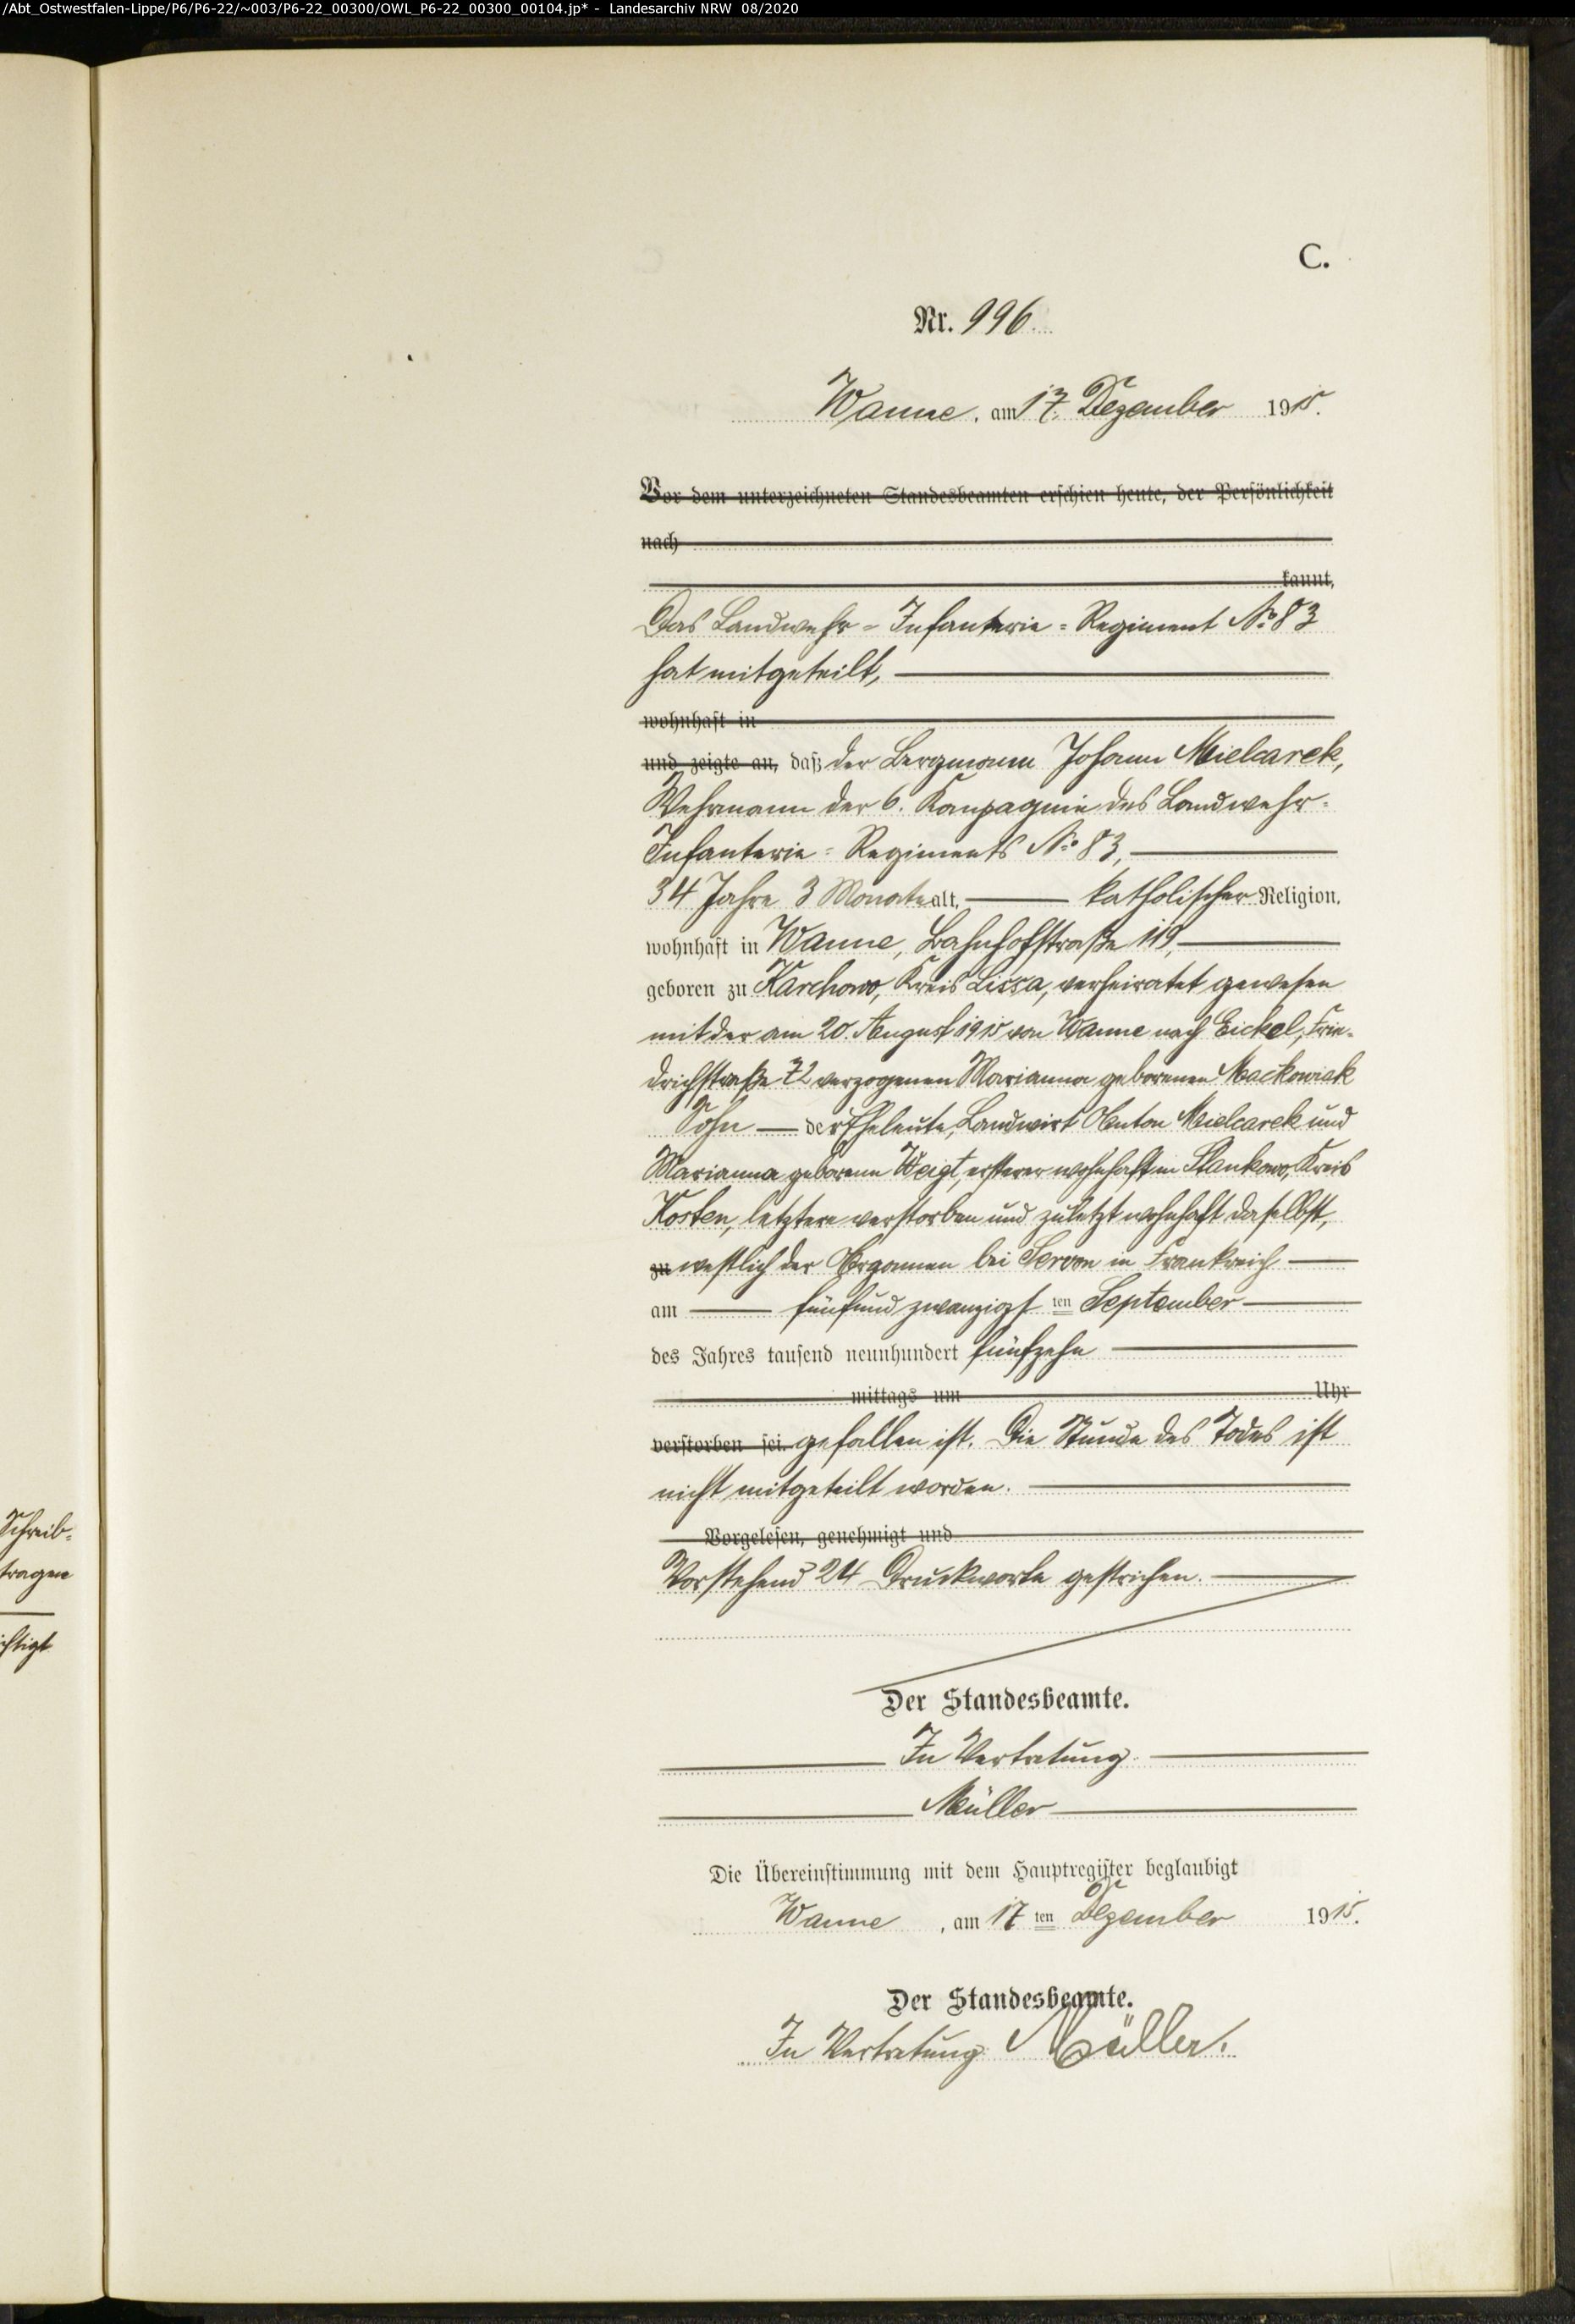 /Abt_Ostwestfalen-Lippe/P6/P6-22/~003/P6-22_00300/OWL_P6-22_00300_00104.jp* - Landesarchiv NRW 08/2020
C.
Nr. 996.
Wanne, am 17. Dezember 1915.
Vor dem unterzeichneten Standesbeamten erschien heute, der Persönlichkeit
nach
kannt,
Das Landwehr-Infanterie-Regiment No 83
hat mitgeteilt,
wohnhaft in
und zeigte an, daß der Bergmann Johann Mielcarek,
Wehrmann der 6. Kompagnie des Landwehr-
Infanterie-Regiments No 83,
34 Jahre 3 Monate alt, katholischer Religion,
wohnhaft in Wanne, Bahnhofstraße 119,
geboren zu Karchowo, Kreis Lissa, verheiratet gewesen
mit der am 20. August 1915 von Wanne nach Eickel, Frie-
drichstraße 72 verzogenen Marianna geborenen Mackowiak
Sohn der Eheleute, Landwirt Anton Mielcarek und
Marianna geborene Weigt, ersterer wohnhaft in Stankowo, Kreis
Kosten, letztere verstorben und zuletzt wohnhaft daselbst,
zu westlich der Argonnen bei Servon in Frankreich
am fünfundzwanzigsten September
des Jahres tausend neunhundert fünfzehn
mittags um Uhr
verstorben sei. gefallen ist. Die Stunde des Todes ist
nicht mitgeteilt worden.
Vorgelesen, genehmigt und
Vorstehend 24 Druckworte gestrichen.
Der Standesbeamte.
In Vertretung.
Müller
Die Übereinstimmung mit dem Hauptregister beglaubigt
Wanne, am 17ten Dezember 1915.
Der Standesbeamte.
In Vertretung Müller.
Schreib-
tragen
chtigt